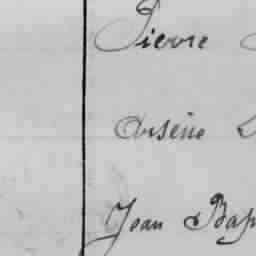 Pierre
Arsène
Jean Bap